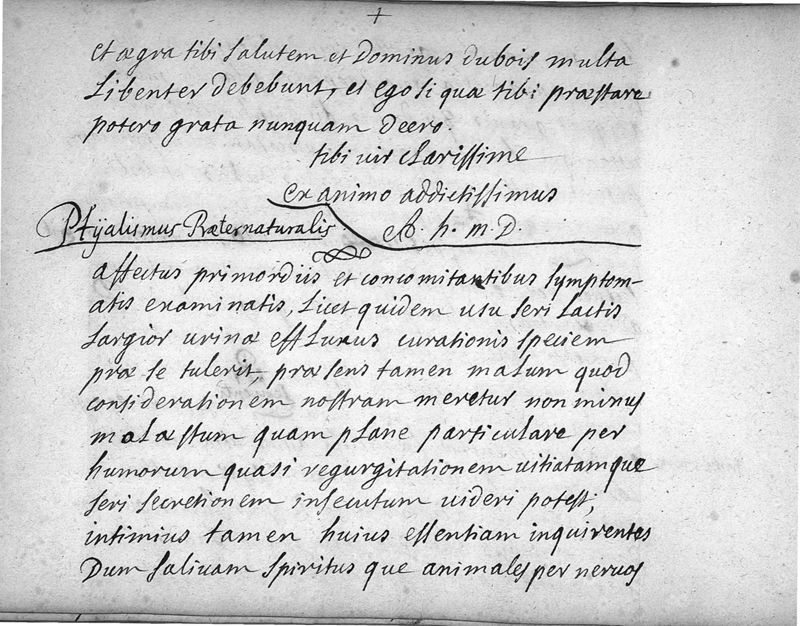 et ægra tibi salutem et Dominus dubois multa
Libenter debebunt, et ego si quæ tibi præstare
potero grata nunquam deero.
tibi vir clarissime
ex animo addictissimus
Ptijalismus Præternaturalis
A. h. m. D.
affectus primordiis et concomitantibus symptom-
atis examinatis, Licet quidem usu seri Lactis
Largior urinæ effluxus curationis speciem
præ se tulerit, præsens tamen malum quod
considerationem nostram meretur non minus
molæstum quam plane particulare per
humorum quasi regurgitationem uitiatamque
seri secretionem insecutum uideri potest;
intimius tamen huius essentiam inquirentes
Dum saliuam spiritus que animales per neruos